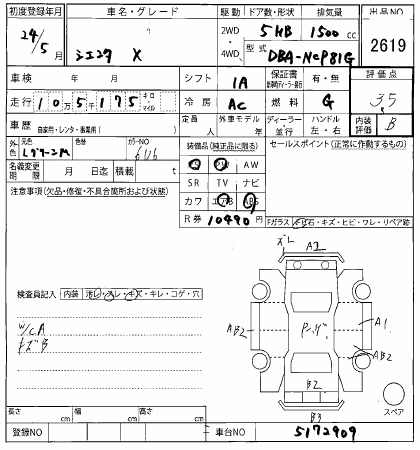 初度登録年月
24/5月
車名・グレード
シエンタ X
駆動
2WD
4WD
ドア数・形状
5HB
排気量
1500cc
型式
DBA-NCP81G
出品NO
2619
車検 年 月
シフト
IA
保証書
有・無
評価点
3.5
走行 10万5千175 キロ・マイル
冷房
AC
燃料
G
車歴 自家用・レンタ・事業用( )
定員
人
外車モデル
年
ディーラー
並行
ハンドル
左・右
内装評価
B
外色
元色
色替
カラーNO
6U6
装備品(純正品に限る)
セールスポイント(正常に作動するもの)
PS PW AW
名義変更期限
月 日迄
積載
t
SR TV ナビ
カワ エアB ABS
R券 10490円
注意事項(欠品・修復・不具合箇所および状態)
Fガラス 石・キズ・ヒビ・ワレ・リペア跡
ズレ A2
検査員記入 内装 汚レ・スレ・キズ・キレ・コゲ・穴
W/CA
キズB
AB2
A1
AB2
B2
B3
スペア
長さ cm
幅 cm
高さ cm
登録NO
車台NO
5172909